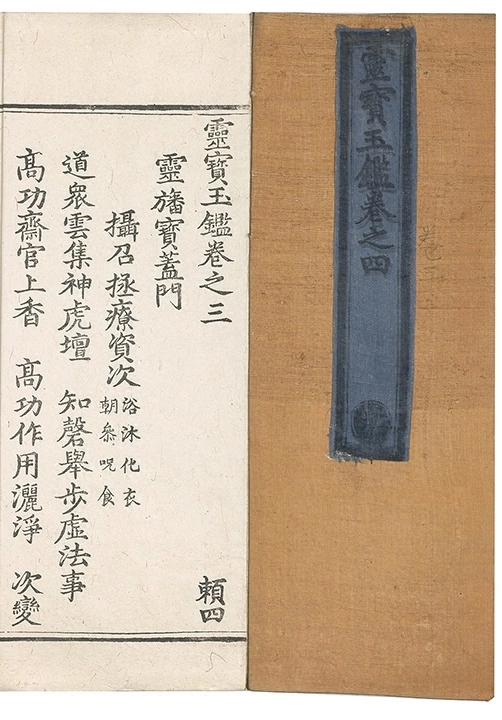 靈寶玉鑑卷之四
卷三
靈寶玉鑑卷之三 賴四
靈旛寶蓋門
攝召拯療資次 浴沐化衣 朝叅呪食
道衆雲集神虎壇 知磬舉步虛法事
髙功齋官上香 髙功作用灑淨 次變